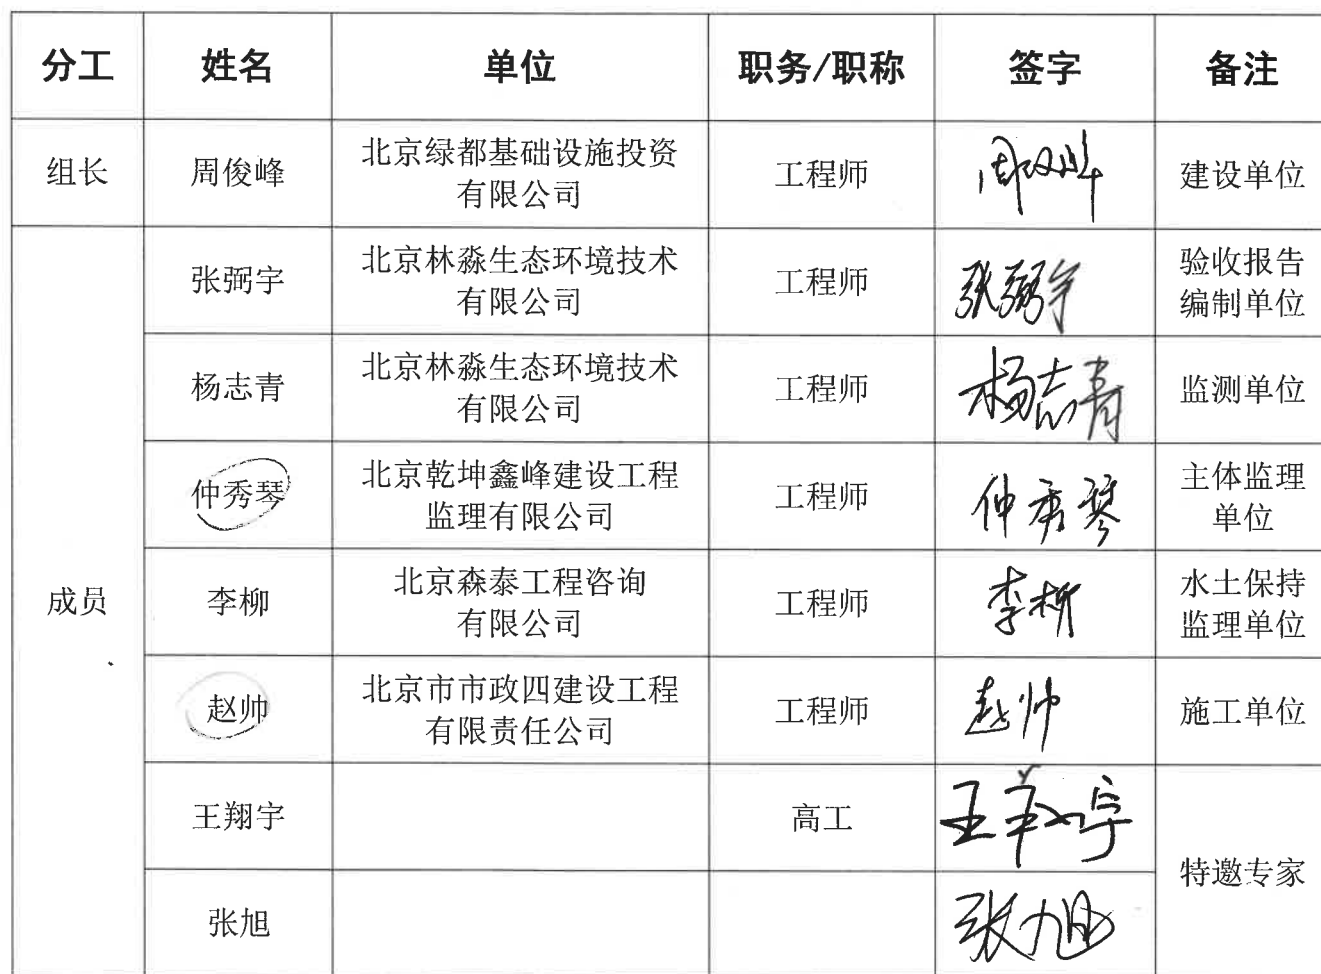 分工 姓名 单位 职务/职称 签字 备注
组长 周俊峰 北京绿都基础设施投资
有限公司 工程师 周俊峰 建设单位
成员
张弼宇 北京林淼生态环境技术
有限公司 工程师 张弼宇 验收报告
编制单位
杨志青 北京林淼生态环境技术
有限公司 工程师 杨志青 监测单位
仲秀琴 北京乾坤鑫峰建设工程
监理有限公司 工程师 仲秀琴 主体监理
单位
李柳 北京森泰工程咨询
有限公司 工程师 李柳 水土保持
监理单位
赵帅 北京市市政四建设工程
有限责任公司 工程师 赵帅 施工单位
王翔宇 高工 王翔宇 特邀专家
张旭 张旭